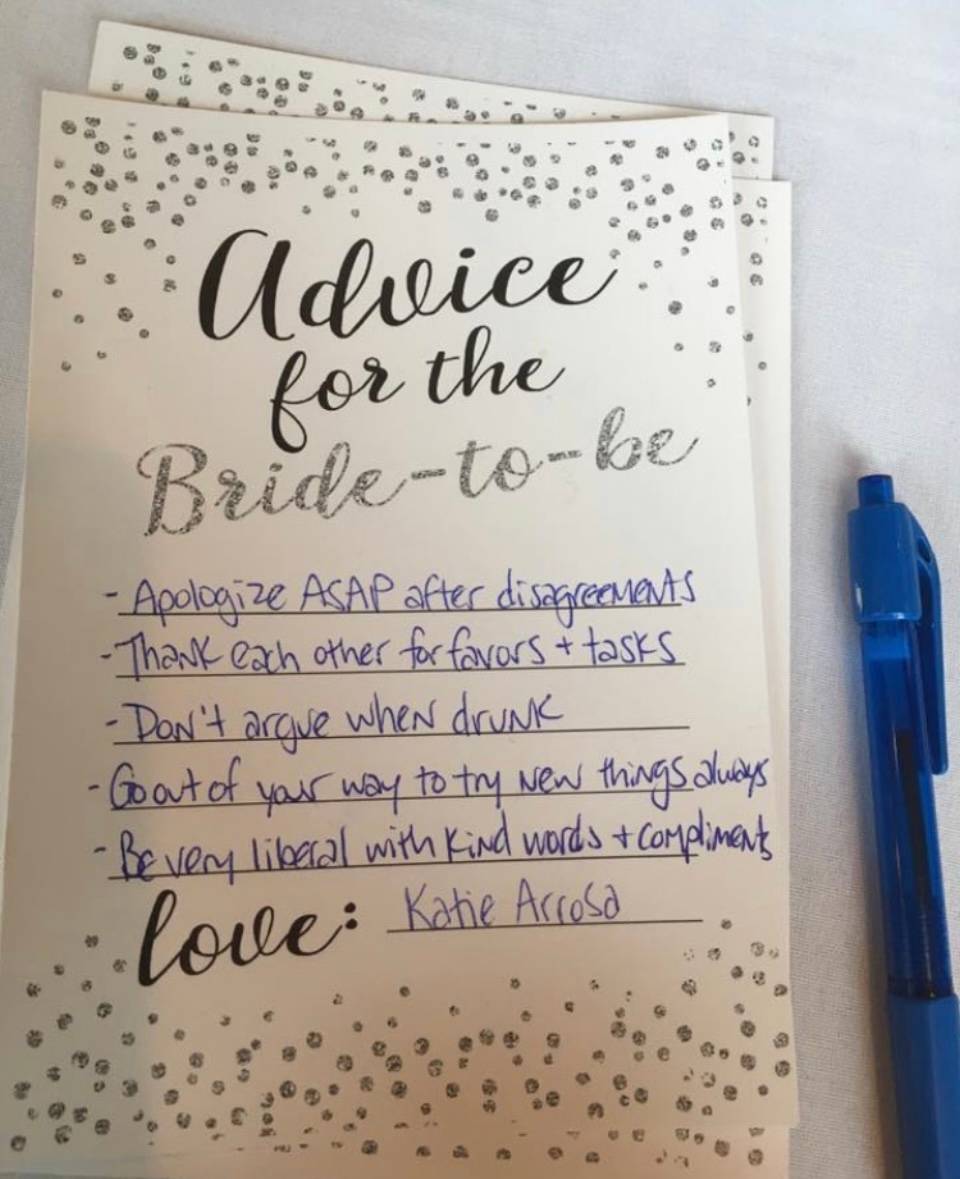 Advice
for the
Bride-to-be
- Apologize ASAP after disagreements
- Thank each other for favors + tasks
- Don't argue when drunk
- Go out of your way to try new things always
- Be very liberal with kind words + compliments
love: Katie Arrosa